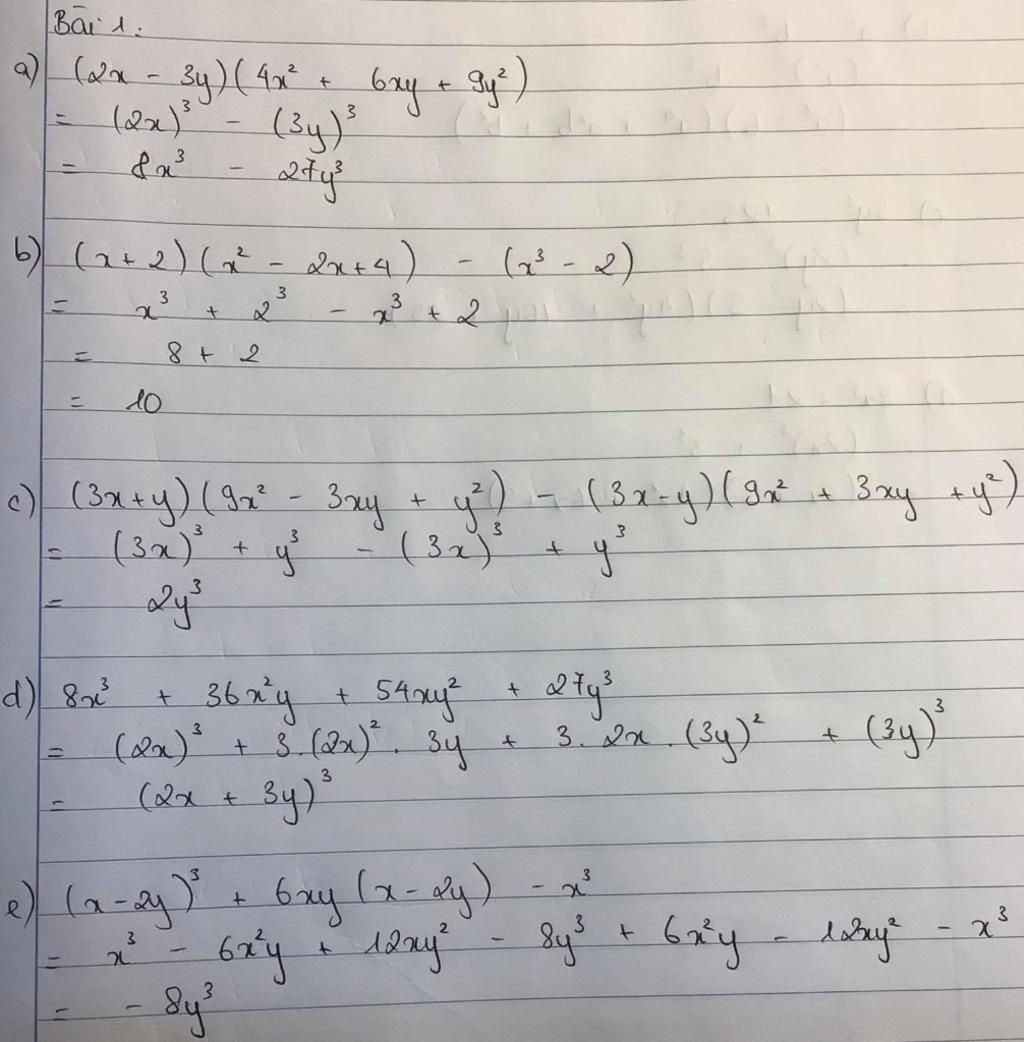 Bài 1:
a) (2x - 3y)(4x² + 6xy + 9y²)
= (2x)³ - (3y)³
= 8x³ - 27y³
b) (x + 2)(x² - 2x + 4) - (x³ - 2)
= x³ + 2³ - x³ + 2
= 8 + 2
= 10
c) (3x + y)(9x² - 3xy + y²) - (3x - y)(9x² + 3xy + y²)
= (3x)³ + y³ - (3x)³ + y³
= 2y³
d) 8x³ + 36x²y + 54xy² + 27y³
= (2x)³ + 3.(2x)².3y + 3.2x.(3y)² + (3y)³
= (2x + 3y)³
e) (x - 2y)³ + 6xy(x - 2y) - x³
= x³ - 6x²y + 12xy² - 8y³ + 6x²y - 12xy² - x³
= - 8y³